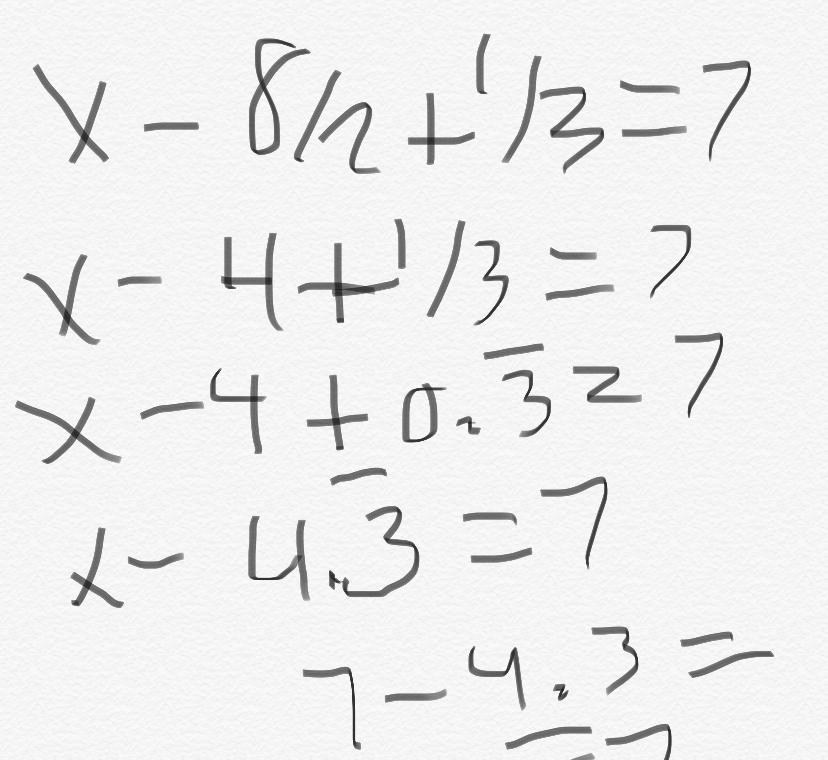 x - 8/2 + 1/3 = 7
x - 4 + 1/3 = 7
x - 4 + 0.3̅ = 7
x - 4.3̅ = 7
7 - 4.3 =